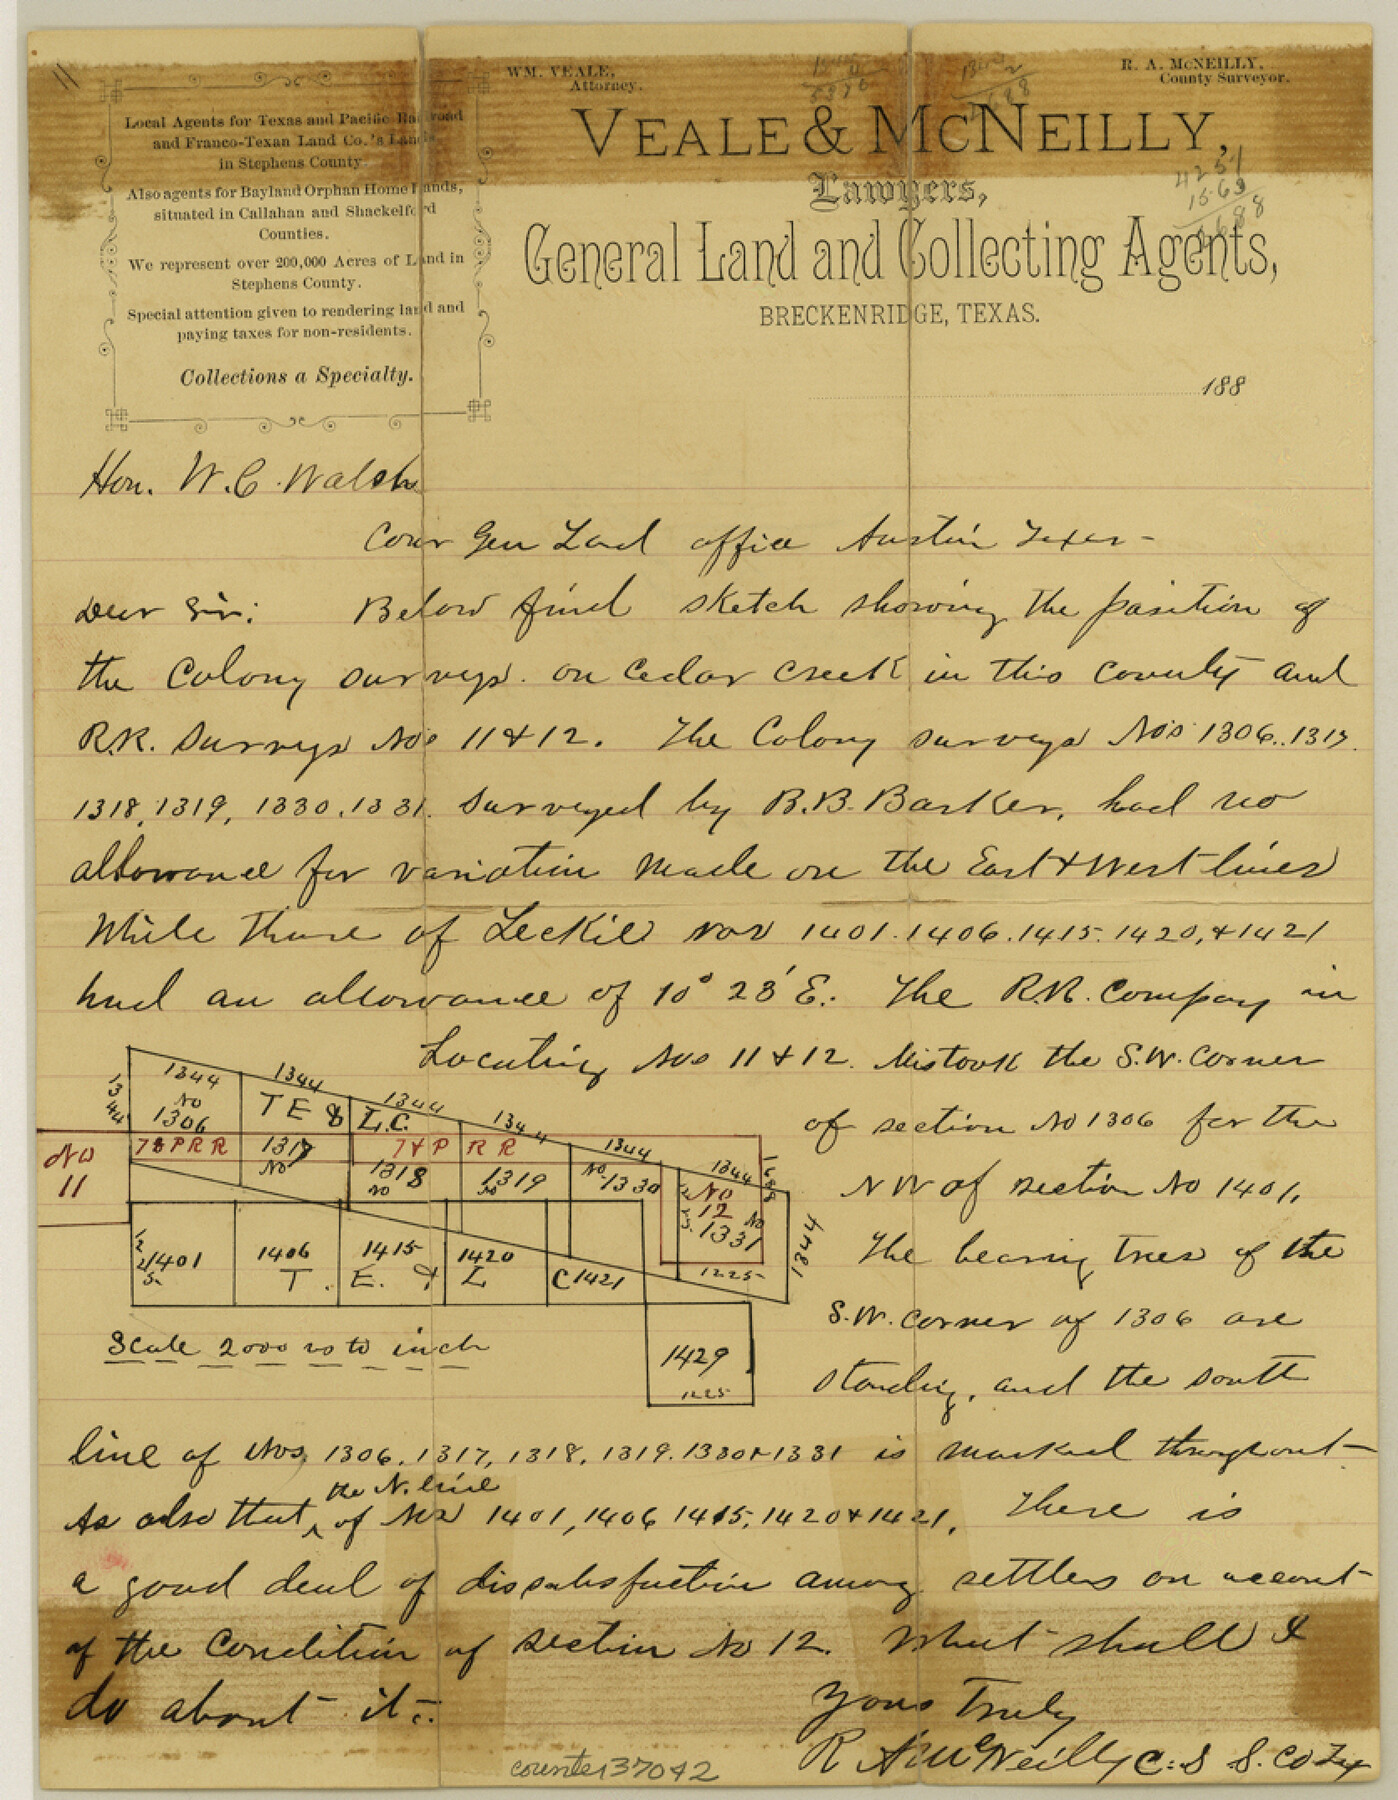 11
WM. VEALE,
Attorney.
R. A. McNEILLY,
County Surveyor.
VEALE & McNEILLY,
Lawyers,
General Land and Collecting Agents,
BRECKENRIDGE, TEXAS.
Local Agents for Texas and Pacific Railroad
and Franco-Texan Land Co.'s Lands
in Stephens County
Also agents for Bayland Orphan Home Lands,
situated in Callahan and Shackelford
Counties.
We represent over 200,000 Acres of Land in
Stephens County.
Special attention given to rendering land and
paying taxes for non-residents.
Collections a Specialty.
4251
1563
2688
188
Hon. W. C. Walsh
Com Gen Land office Austin Texas-
Dear Sir: Below find sketch showing the position of
the Colony surveys. on Cedar Creek in this County and
R.R. Surveys Nos 11 & 12. The Colony surveys Nos 1306..1317.
1318, 1319, 1330, 1331. Surveyed by B.B. Barker, had no
allowance for variation made on the East & West lines
While those of Leckie nos 1401. 1406. 1415. 1420, & 1421
had an allowance of 10° 23' E. The R.R. Company in
Locating Nos 11 & 12. Mistook the S.W. Corner
of section No 1306 for the
N W of section No 1401,
The bearing trees of the
S.W. Corner of 1306 are
standing, and the south
line of Nos, 1306, 1317, 1318, 1319. 1330 & 1331 is marked throughout-
As also that ^ the N. line of Nos 1401, 1406 1415, 1420 & 1421. There is
a good deal of dissatisfaction among settlers on account
of the Condition of section No 12. What shall I
do about it-:
Yours Truly
R A McNeilly C. S S. Co Tex
1344 1344 1344 1344 1344 1344
1344
No
1306
T E & L. C.
T & P R R
1317
No
T & P R R
1318
No
1319
No
No 1330
No
12
No
1331
1688
1344
1225
No
11
1225
1401
1406
1415
1420
1421
T. E. & L C
1429
1225
Scale 2000 vs to inch
counter 37042